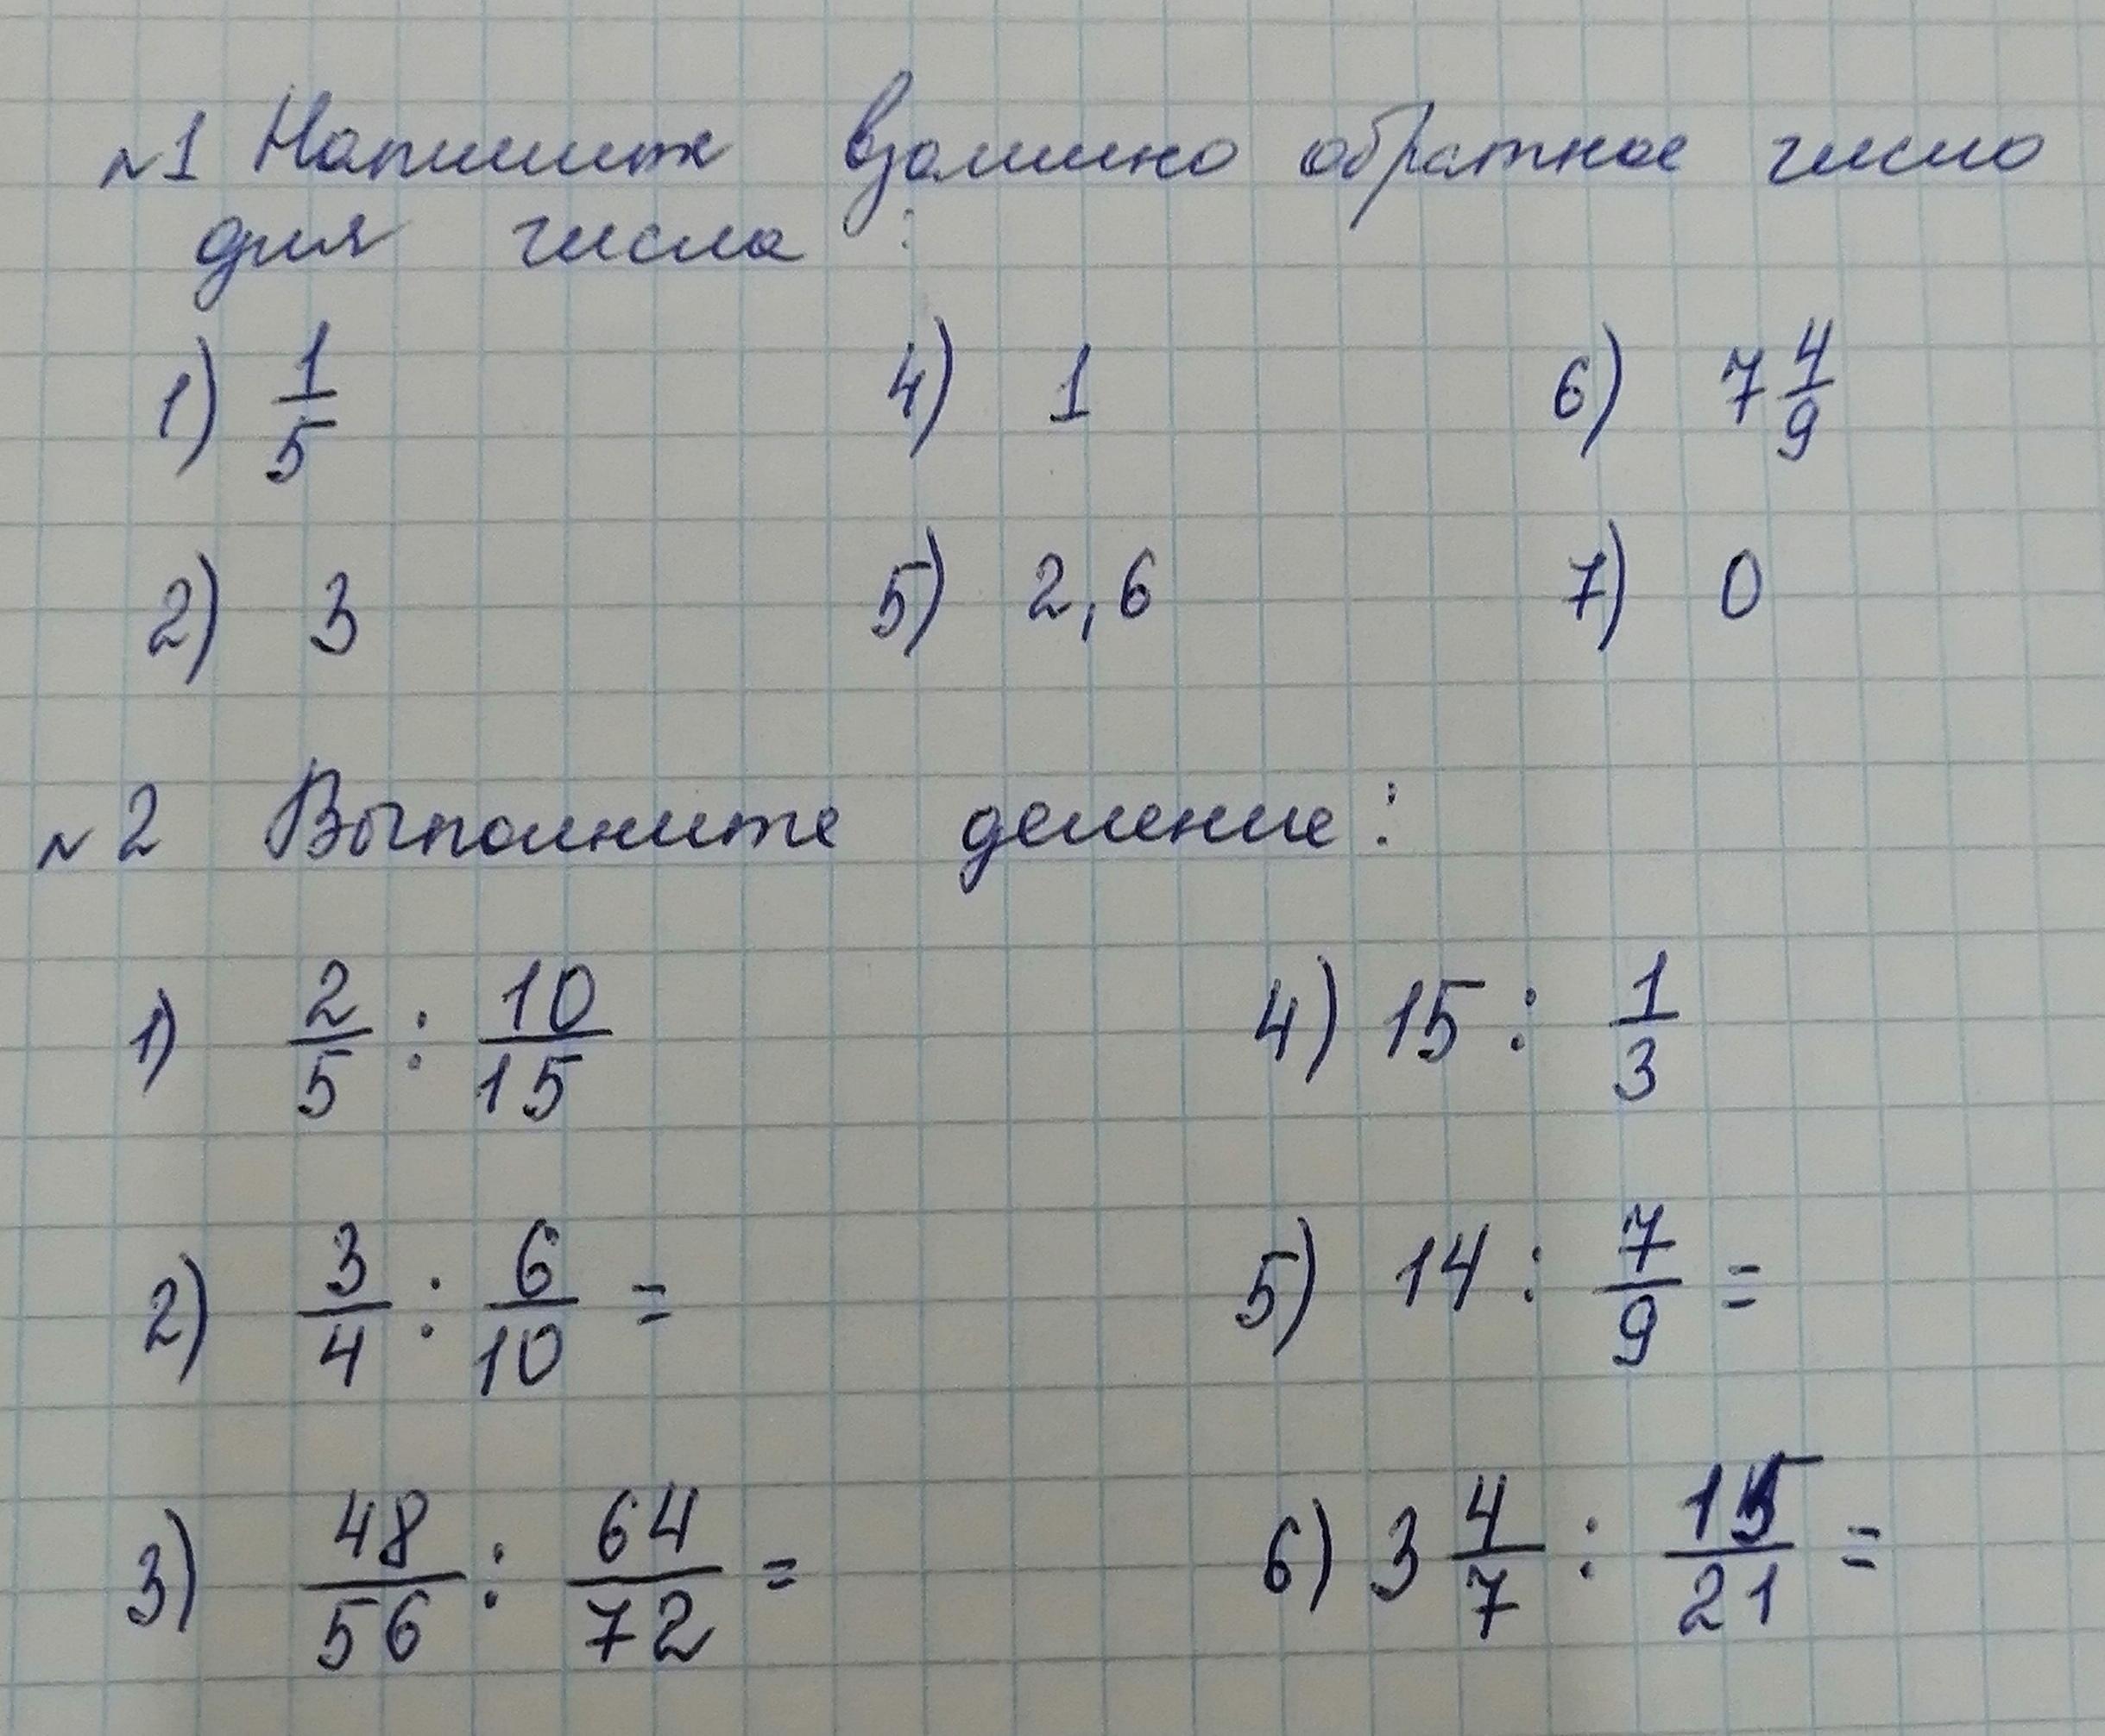 №1 Напишите взаимно обратное число
для числа:
1) 1/5 4) 1 6) 7 4/9
2) 3 5) 2,6 7) 0
№2 Выполните деление:
1) 2/5 : 10/15 4) 15 : 1/3
2) 3/4 : 6/10 = 5) 14 : 7/9 =
3) 48/56 : 64/72 = 6) 3 4/7 : 15/21 =